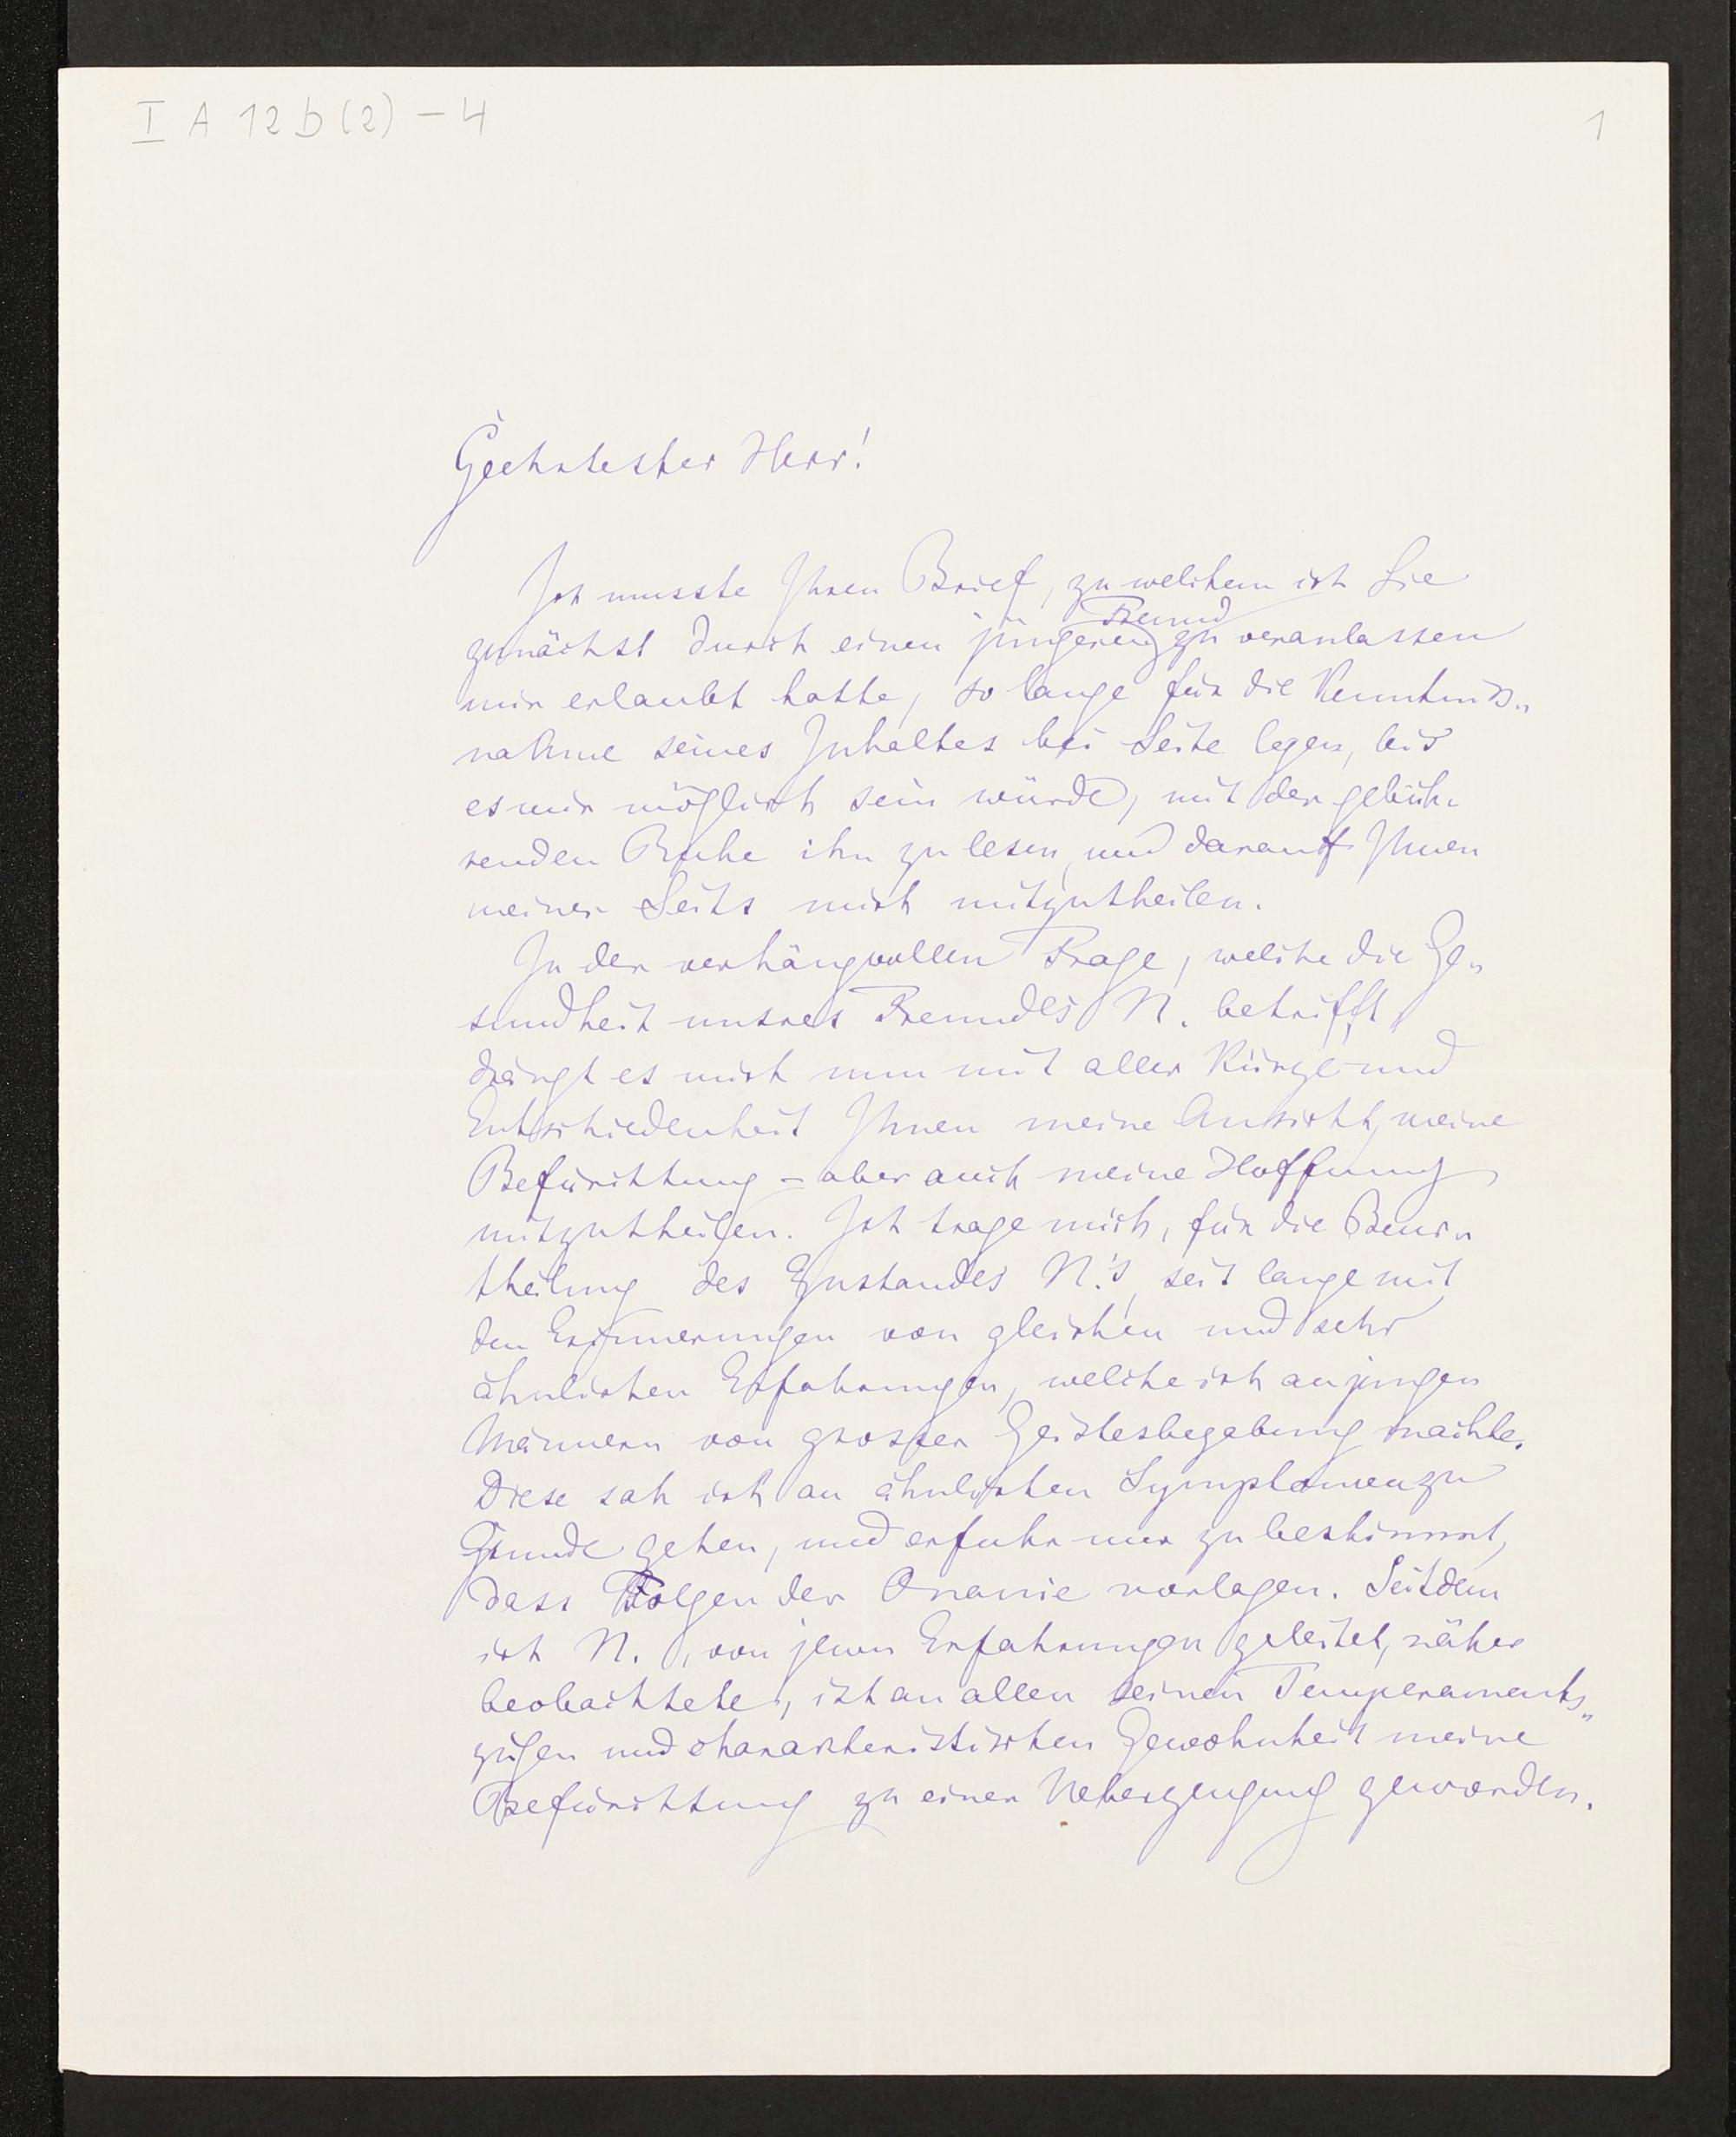 I A 12 b (2) - 4
1
Geehrtester Herr!
Ich musste Ihren Brief, zu welchem ich Sie
Freund
zunächst durch einen jüngeren zu veranlassen
mir erlaubt hatte, so lange für die Kenntniss„
nahme seines Inhaltes bei Seite legen, bis
es mir möglich sein würde, mit der gebüh„
renden Ruhe ihn zu lesen, und darauf Ihnen
meiner Seits mich mitzutheilen.
In der verhängvollen Frage, welche die Ge„
sundheit unsres Freundes N. betrifft,
drängt es mich nun mit aller Kürze und
Entschiedenheit Ihnen meine Ansicht, meine
Befürchtung – aber auch meine Hoffnung
mitzutheilen. Ich trage mich, für die Beur„
theilung des Zustandes N.'s, seit lange mit
den Erinnerungen von gleichen und sehr
ähnlichen Erfahrungen, welche ich an jungen
Männern von grosser Geistesbegabung machte.
Diese sah ich an ähnlichen Symptomen zu
Grunde gehen, und erfuhr nur zu bestimmt,
dass Folgen der Onanie vorlagen. Seitdem
ich N., von jenen Erfahrungen geleitet, näher
beobachtete, ist an allen seinen Temperaments„
zügen und charakteristischen Gewohnheit meine
Befürchtung zu einer Ueberzeugung geworden.